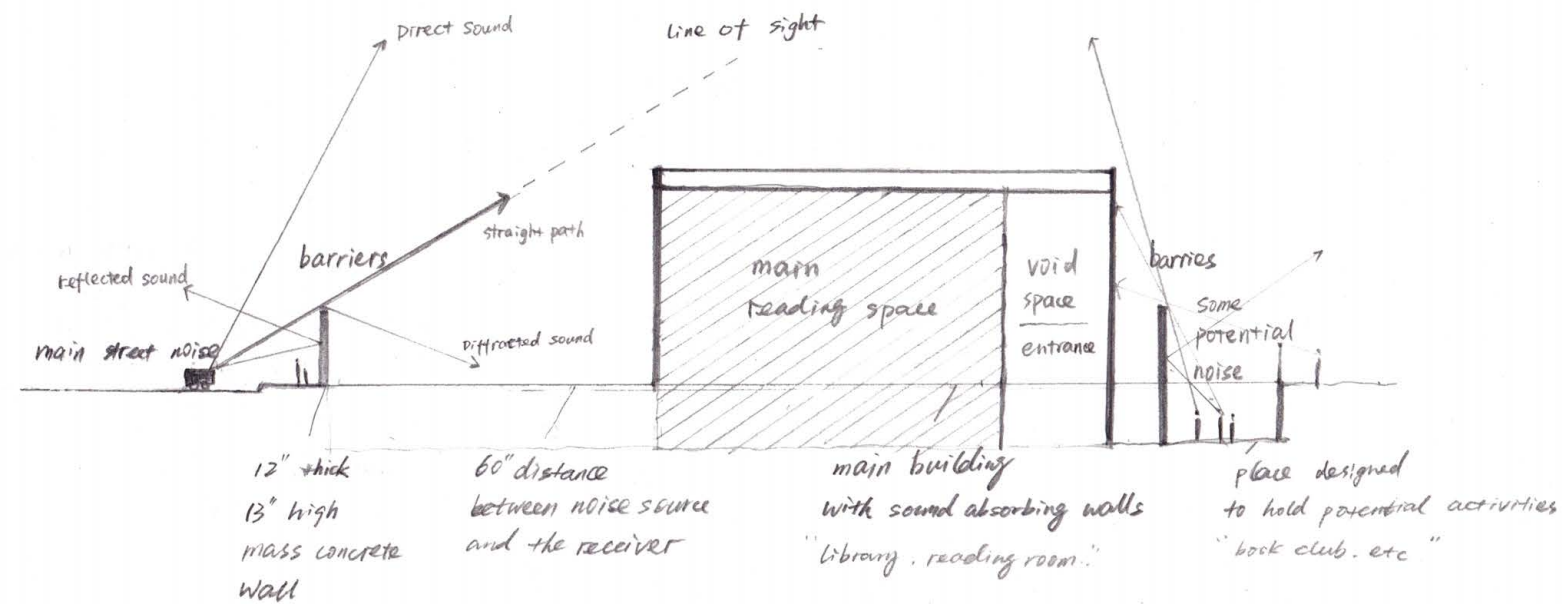 Direct sound
line of sight
straight path
barriers
reflected sound
main street noise
Diffracted sound
main
reading space
void
space
entrance
barries
some
potential
noise
12" thick
13" high
mass concrete
wall
60" distance
between noise source
and the receiver
main building
with sound absorbing walls
"library. reading room."
place designed
to hold potential activities
"book club. etc"